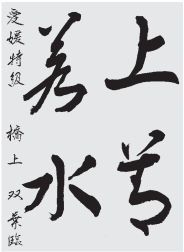 上善
若水
愛媛特級 橋上双葉臨